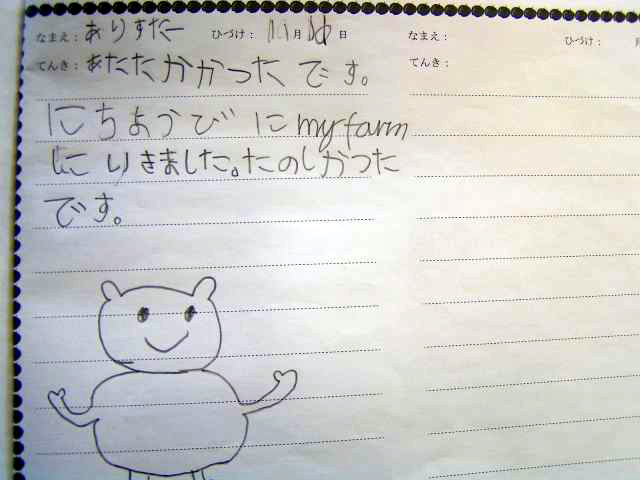 なまえ： ありすたー ひづけ： 11月 日
てんき： あたたかかつた です。
にちようび に my farm
に いきました。たのしかつた
です。
なまえ： ひづけ：
てんき：